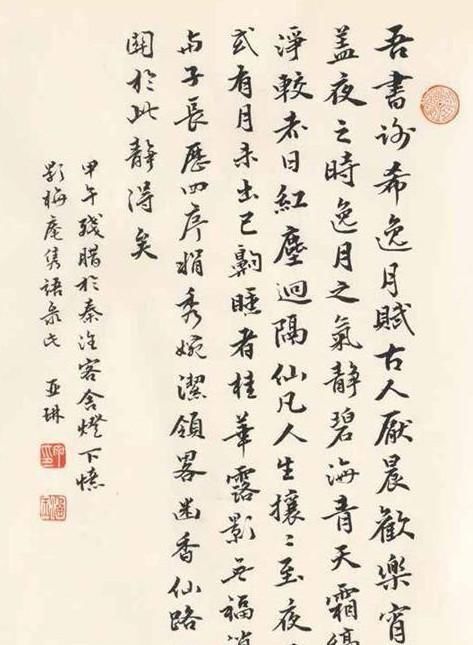 吾書謝希逸月賦古人厭晨歡樂宵
蓋夜之時逸月之氣靜碧海青天霜縞
淨較赤日紅塵迥隔仙凡人生攘〻至夜
或有月未出已齁睡者桂華露影无福消
与子長歷四序娟秀婉潔領畧幽香仙路
關於此靜得矣
甲午殘臘於秦淮客舍燈下憶
影梅庵雋語录此 亞琳